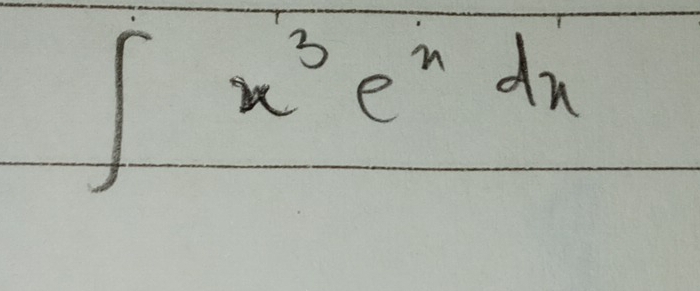 ∫ x³ eˣ dx